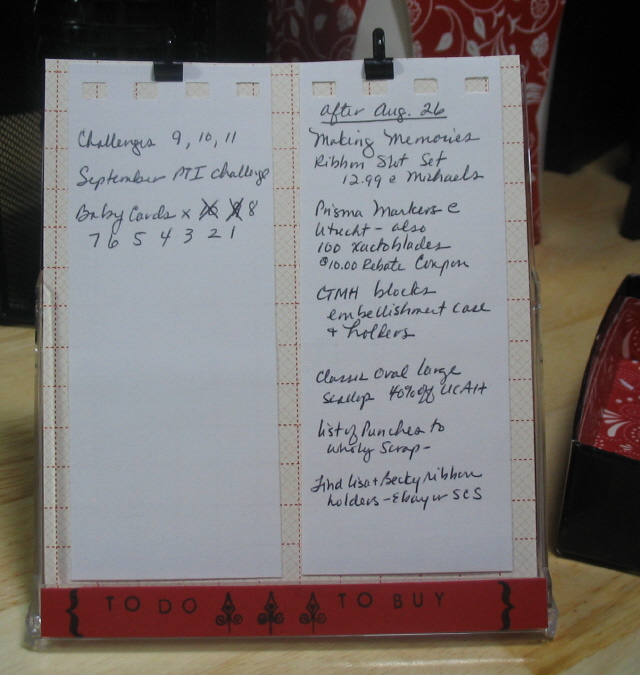 Challenges 9, 10, 11
September PTI challenge
Baby Cards x 8
7 6 5 4 3 2 1
after Aug. 26
Making Memories
Ribbon Slot Set
12.99 @ Michaels
Prisma Markers @
Utrecht - also
100 xactoblades
$10.00 Rebate Coupon
CTMH blocks
embellishment case
+ holders
Classic Oval large
Scallop 40% off UCAH
List of Punches to
Wholly Scrap -
Find Lisa + Becky ribbon
holders - Ebay or SCS
TO DO
TO BUY